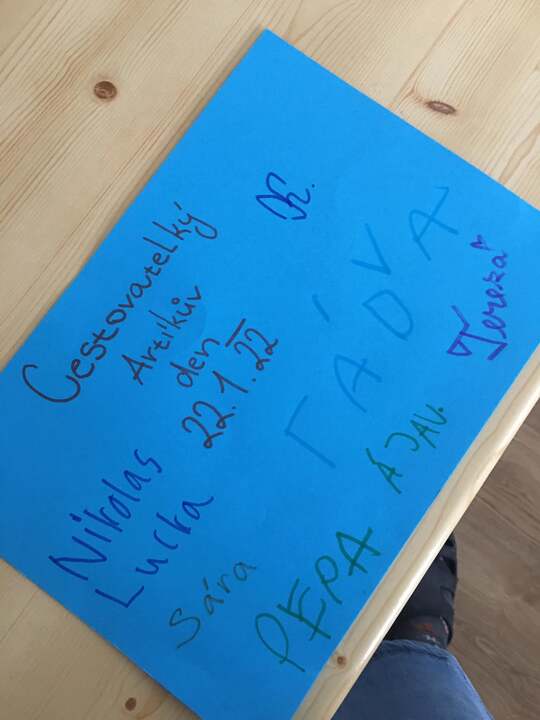 Cestovatelký
Artíkův
den
22.1.22
Nikolas
Lucka
Sára
PEPA
ÁJAV.
Tereza